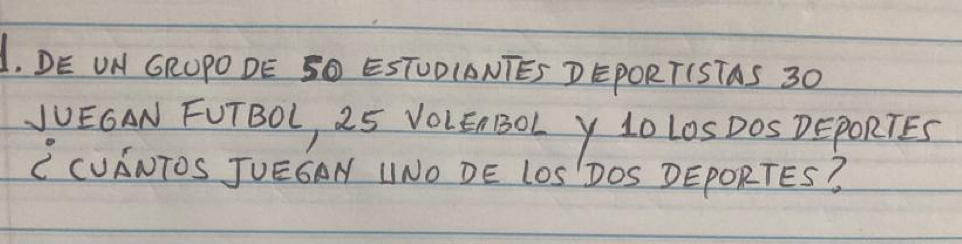 1. DE UN GRUPO DE 50 ESTUDIANTES DEPORTISTAS 30
JUEGAN FUTBOL, 25 VOLEIBOL Y 10 LOS DOS DEPORTES
¿ CUÁNTOS JUEGAN UNO DE LOS DOS DEPORTES?